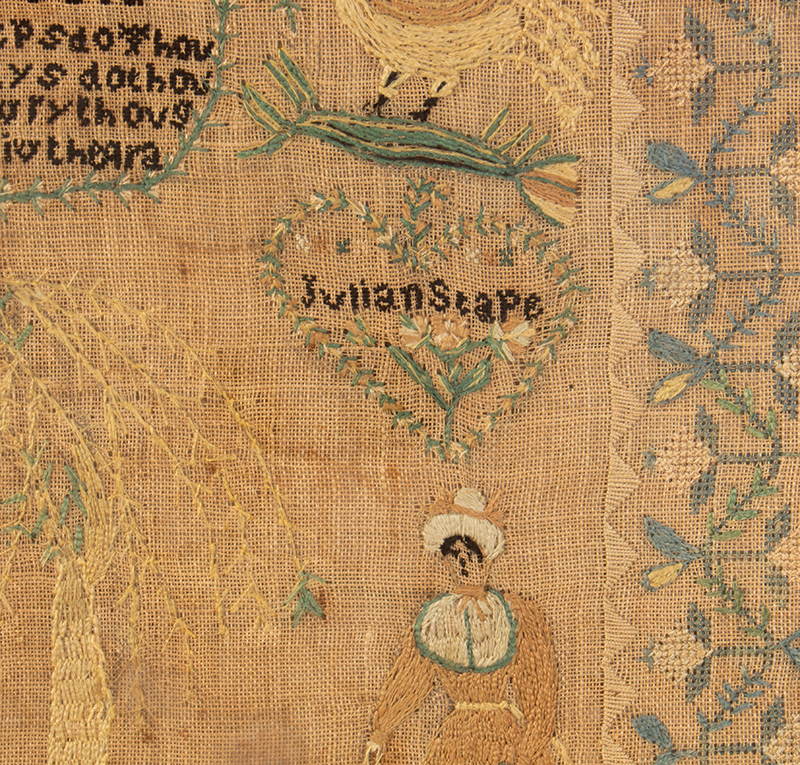 epsdo thou
ys dothou
ury thoug
iw theara
Julian Stape